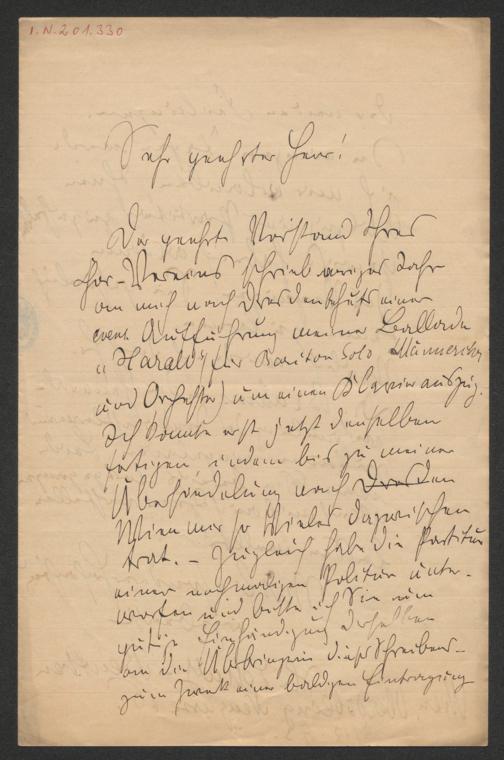 I.N.201.330
Sehr geehrter Herr!
Der geehrte Vorstand Ihres
Chor-Vereins schrieb voriges Jahr
an mich nach Dresden behufs einer
event. Aufführung meiner Ballade
„Harald" (für Bariton Solo Männerchor
und Orchester) um einen Klavierauszug.
Ich konnte erst jetzt denselben
fertigen, indem bis zu meiner
Übersiedelung nach Dresden
Wien mir so Vieles dazwischen
trat. – Zugleich habe die Partitur
einer nochmaligen Politur unter-
worfen und bitte ich Sie um
gütige Einhändigung derselben
an die Überbringerin dieses Schreibens –
zum Zweck einer baldigen Eintragung